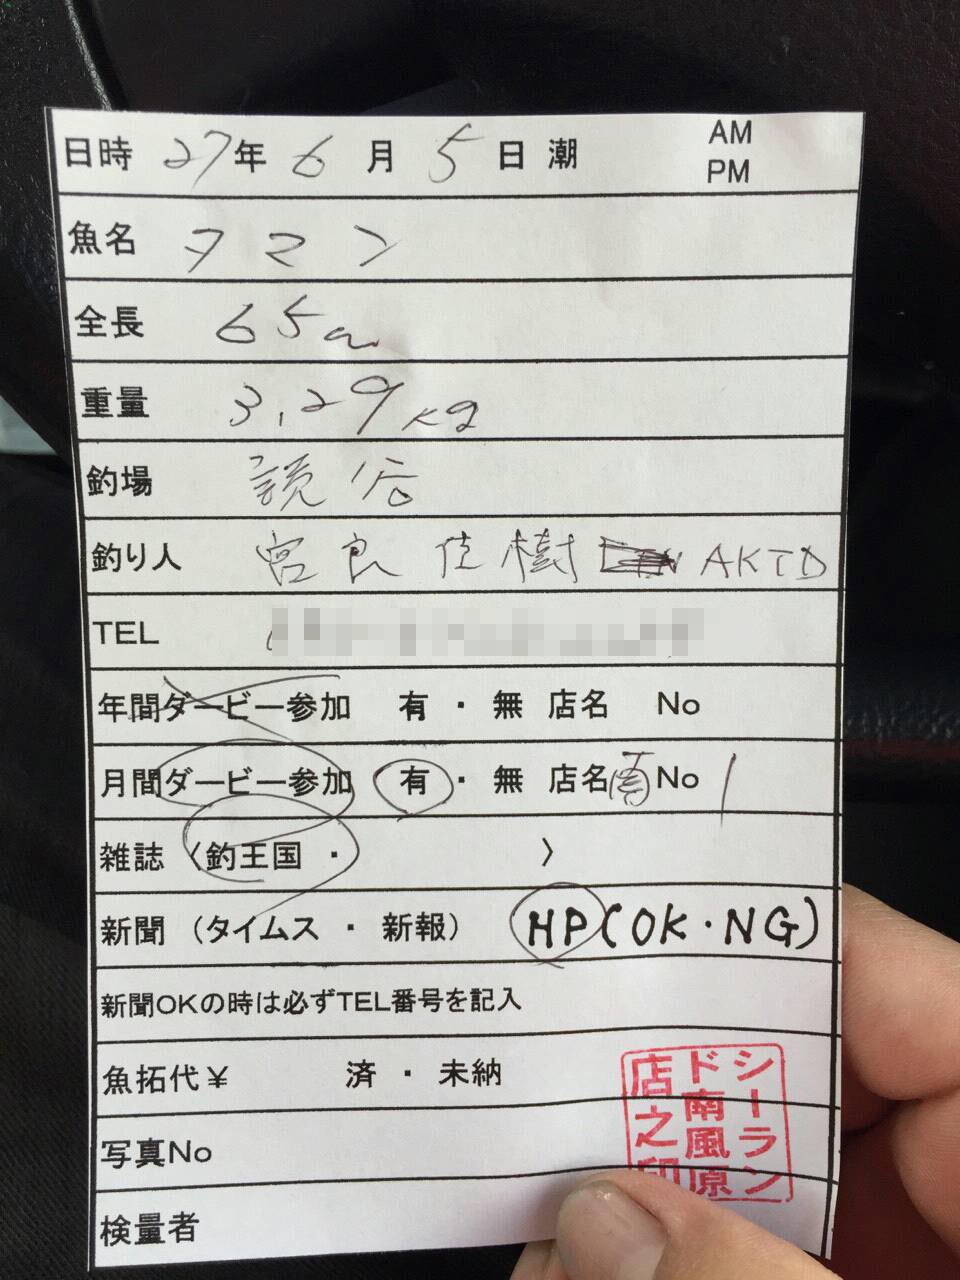 日時 27年 6月 5日 潮 AM PM
魚名 タマン
全長 65cm
重量 3.29kg
釣場 読谷
釣り人 宮良佳樹 AKTD
TEL
年間ダービー参加 有・無 店名 No
月間ダービー参加 有・無 店名 南 No 1
雑誌〈釣王国・ 〉
新聞（タイムス・新報） HP(OK・NG)
新聞OKの時は必ずTEL番号を記入
魚拓代¥ 済・未納
写真No
検量者
シーランド南風原店之印